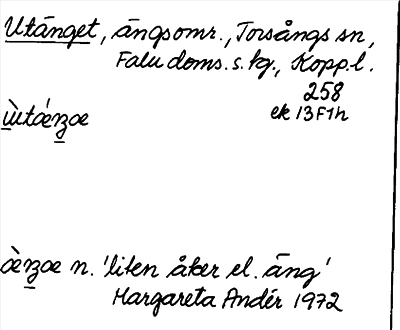 Utänget, ängsomr., Torsångs sn,
Falu doms. s. kg., Kopp. l.
258
ek 13F1h
ὼtǽʒæ
æ̀ʒæ n. 'liten åker el. äng'
Margareta Andér 1972